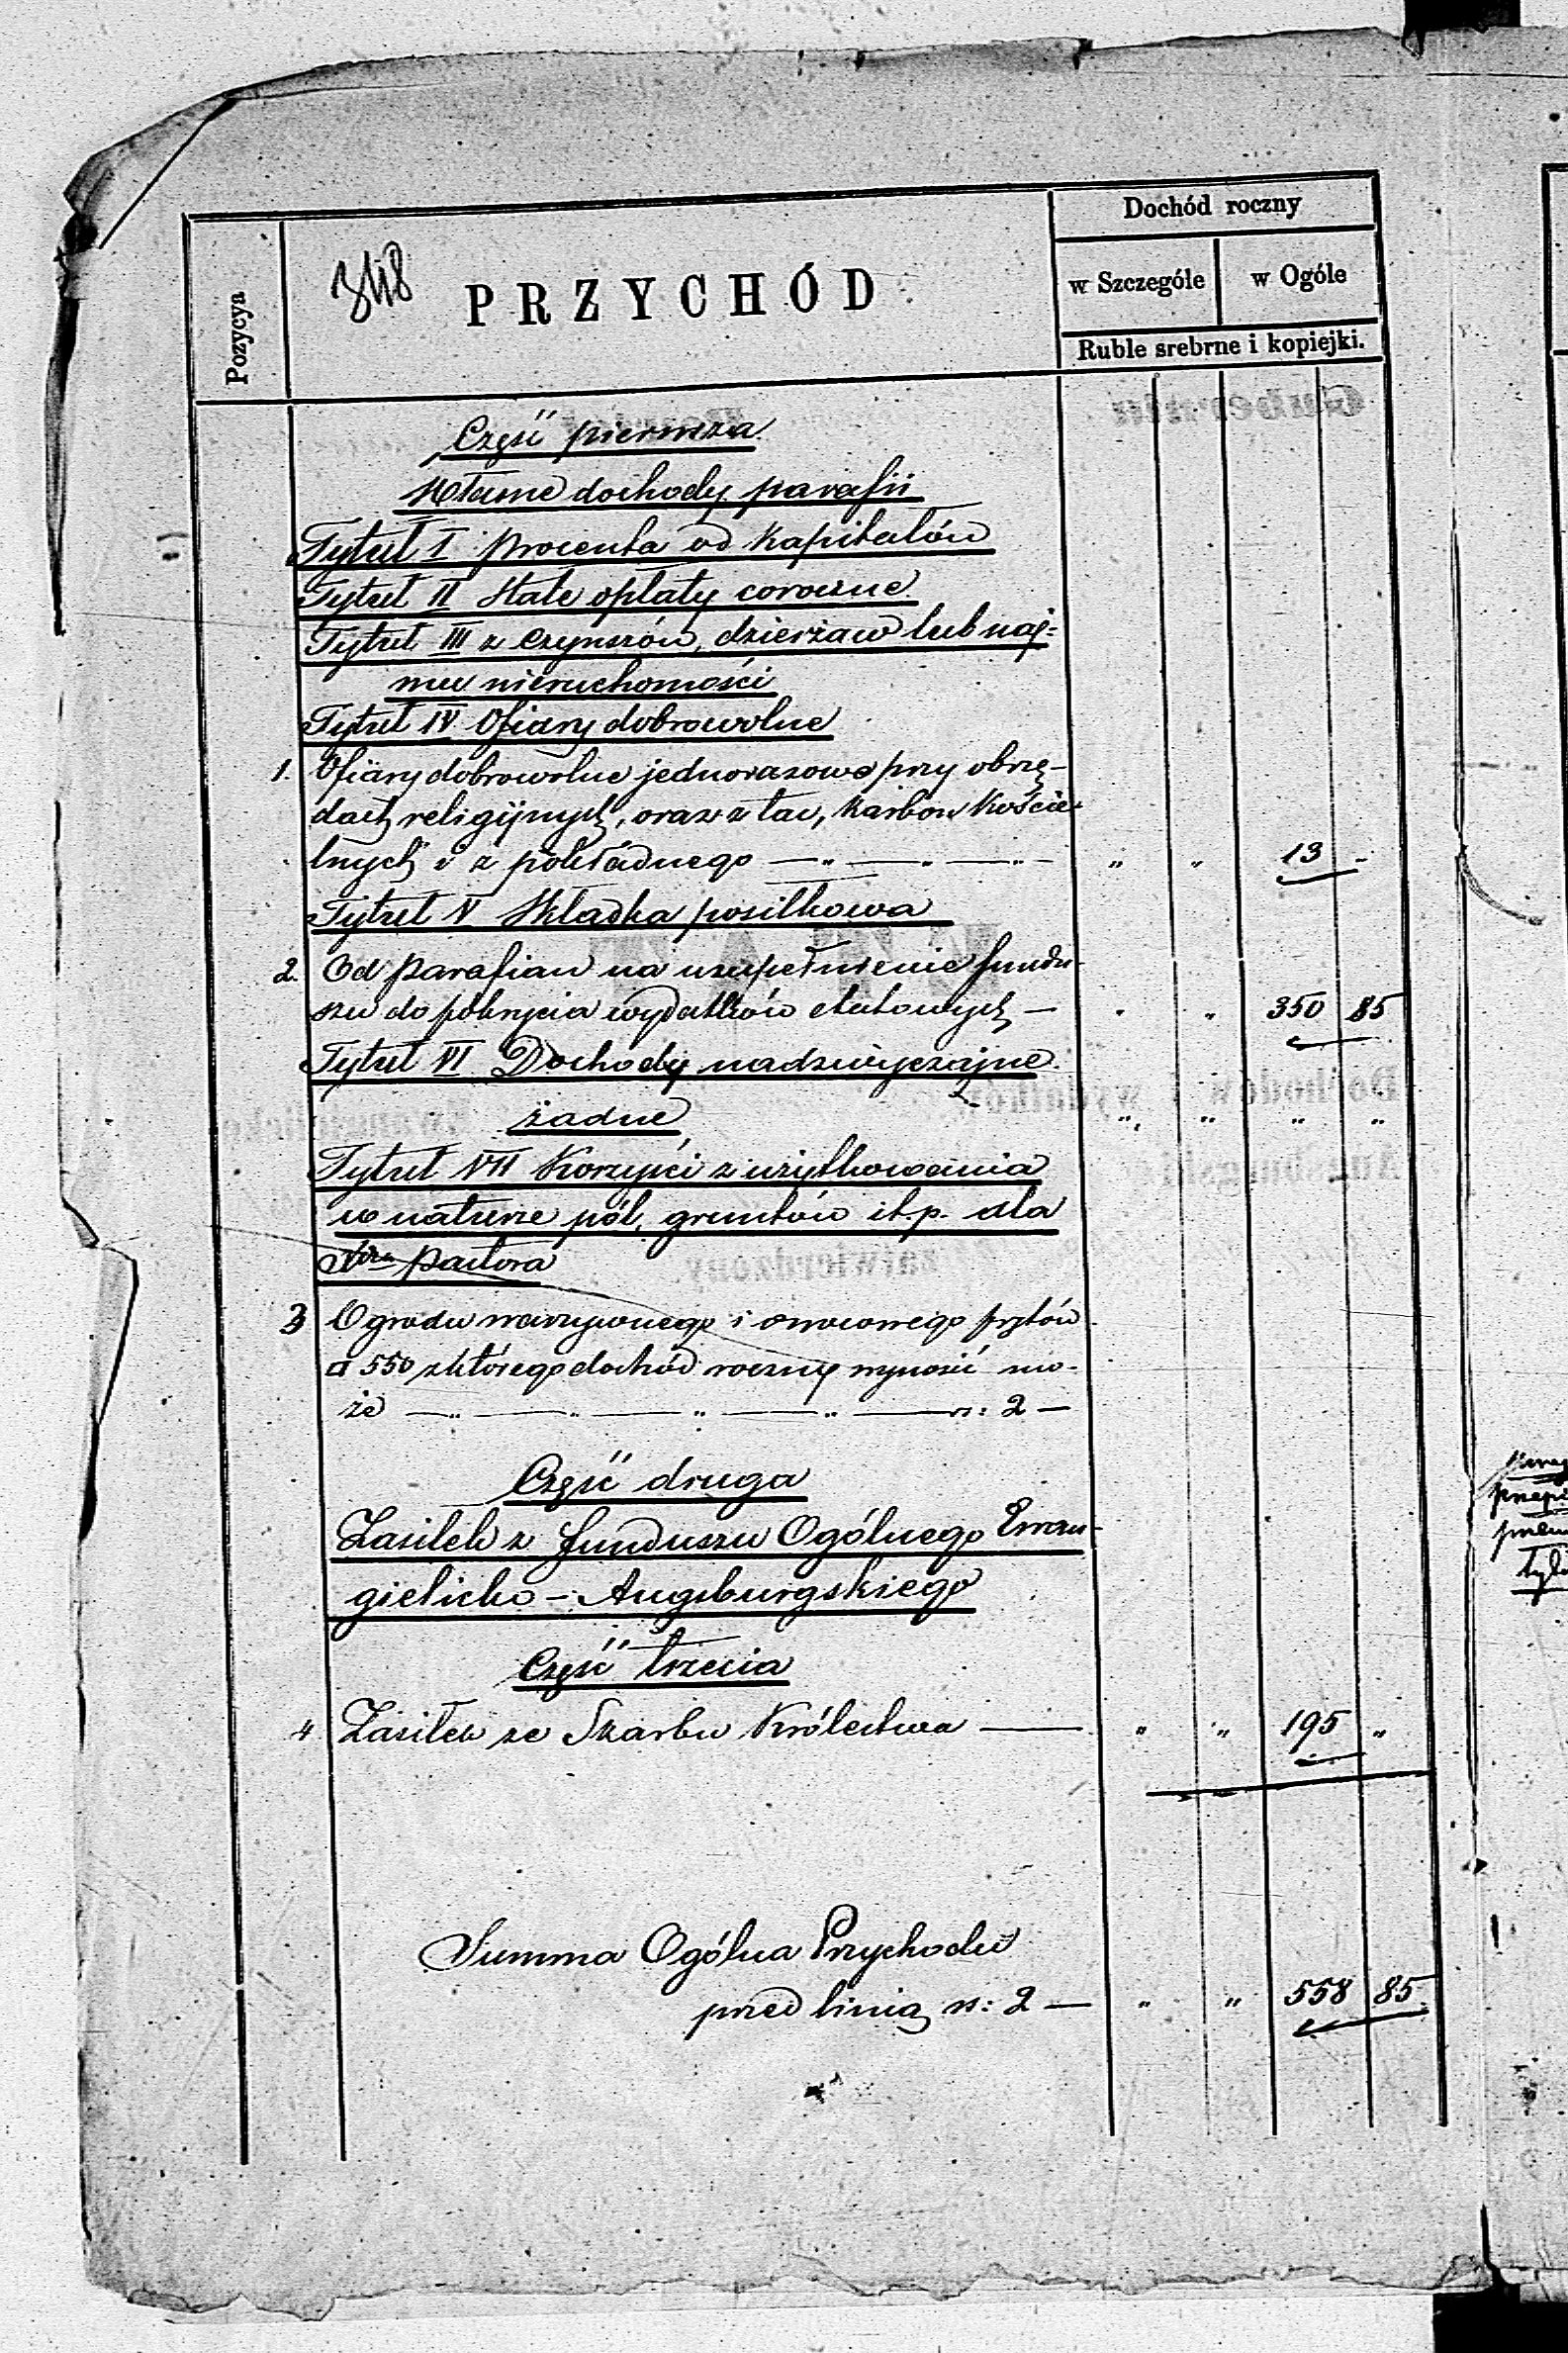 Dochód roczny
348
PRZYCHÓD
w Szczególe
w Ogóle
Pozycya
Ruble srebrne i kopiejki.
Część pierwsza
Własne dochody parafii
Tytuł I Procenta od Kapitałów
Tytuł II Stałe opłaty coroczne
Tytuł III z Czynszów, dzierżaw lub naj-
mu nieruchomości
Tytuł IV Ofiary dobrowolne
1. Ofiary dobrowolne jednorazowe przy obrzę-
dach religijnych, oraz z tac, Karbon Kościel-
lnych i z pokładnego — „ — „ — „ — „ „ 13 -
Tytuł V Składka posiłkowa
2. Od Parafian na uzupełnienie fundu-
szu do pokrycia wydatków etatowych — „ „ 350 85
Tytuł VI Dochody nadzwyczajne
żadne „ „ „ „
Tytuł VII Korzyści z użytkowania
w naturze pól, gruntów it.p. dla
Pastora
3 Ogrodu warzywnego i owocowego prętów
□ 550 z którego dochód roczny wynosić mo-
że — „ — „ — „ — „ — rs: 2 —
Część druga
Zasiłek z funduszu Ogólnego Ewan-
gielicko - Augsburgskiego
Część trzecia
4 Zasiłek ze Skarbu Królestwa — „ „ 195 „
Summa Ogólna Przychodu
przed linią rs: 2 — „ „ 558 85